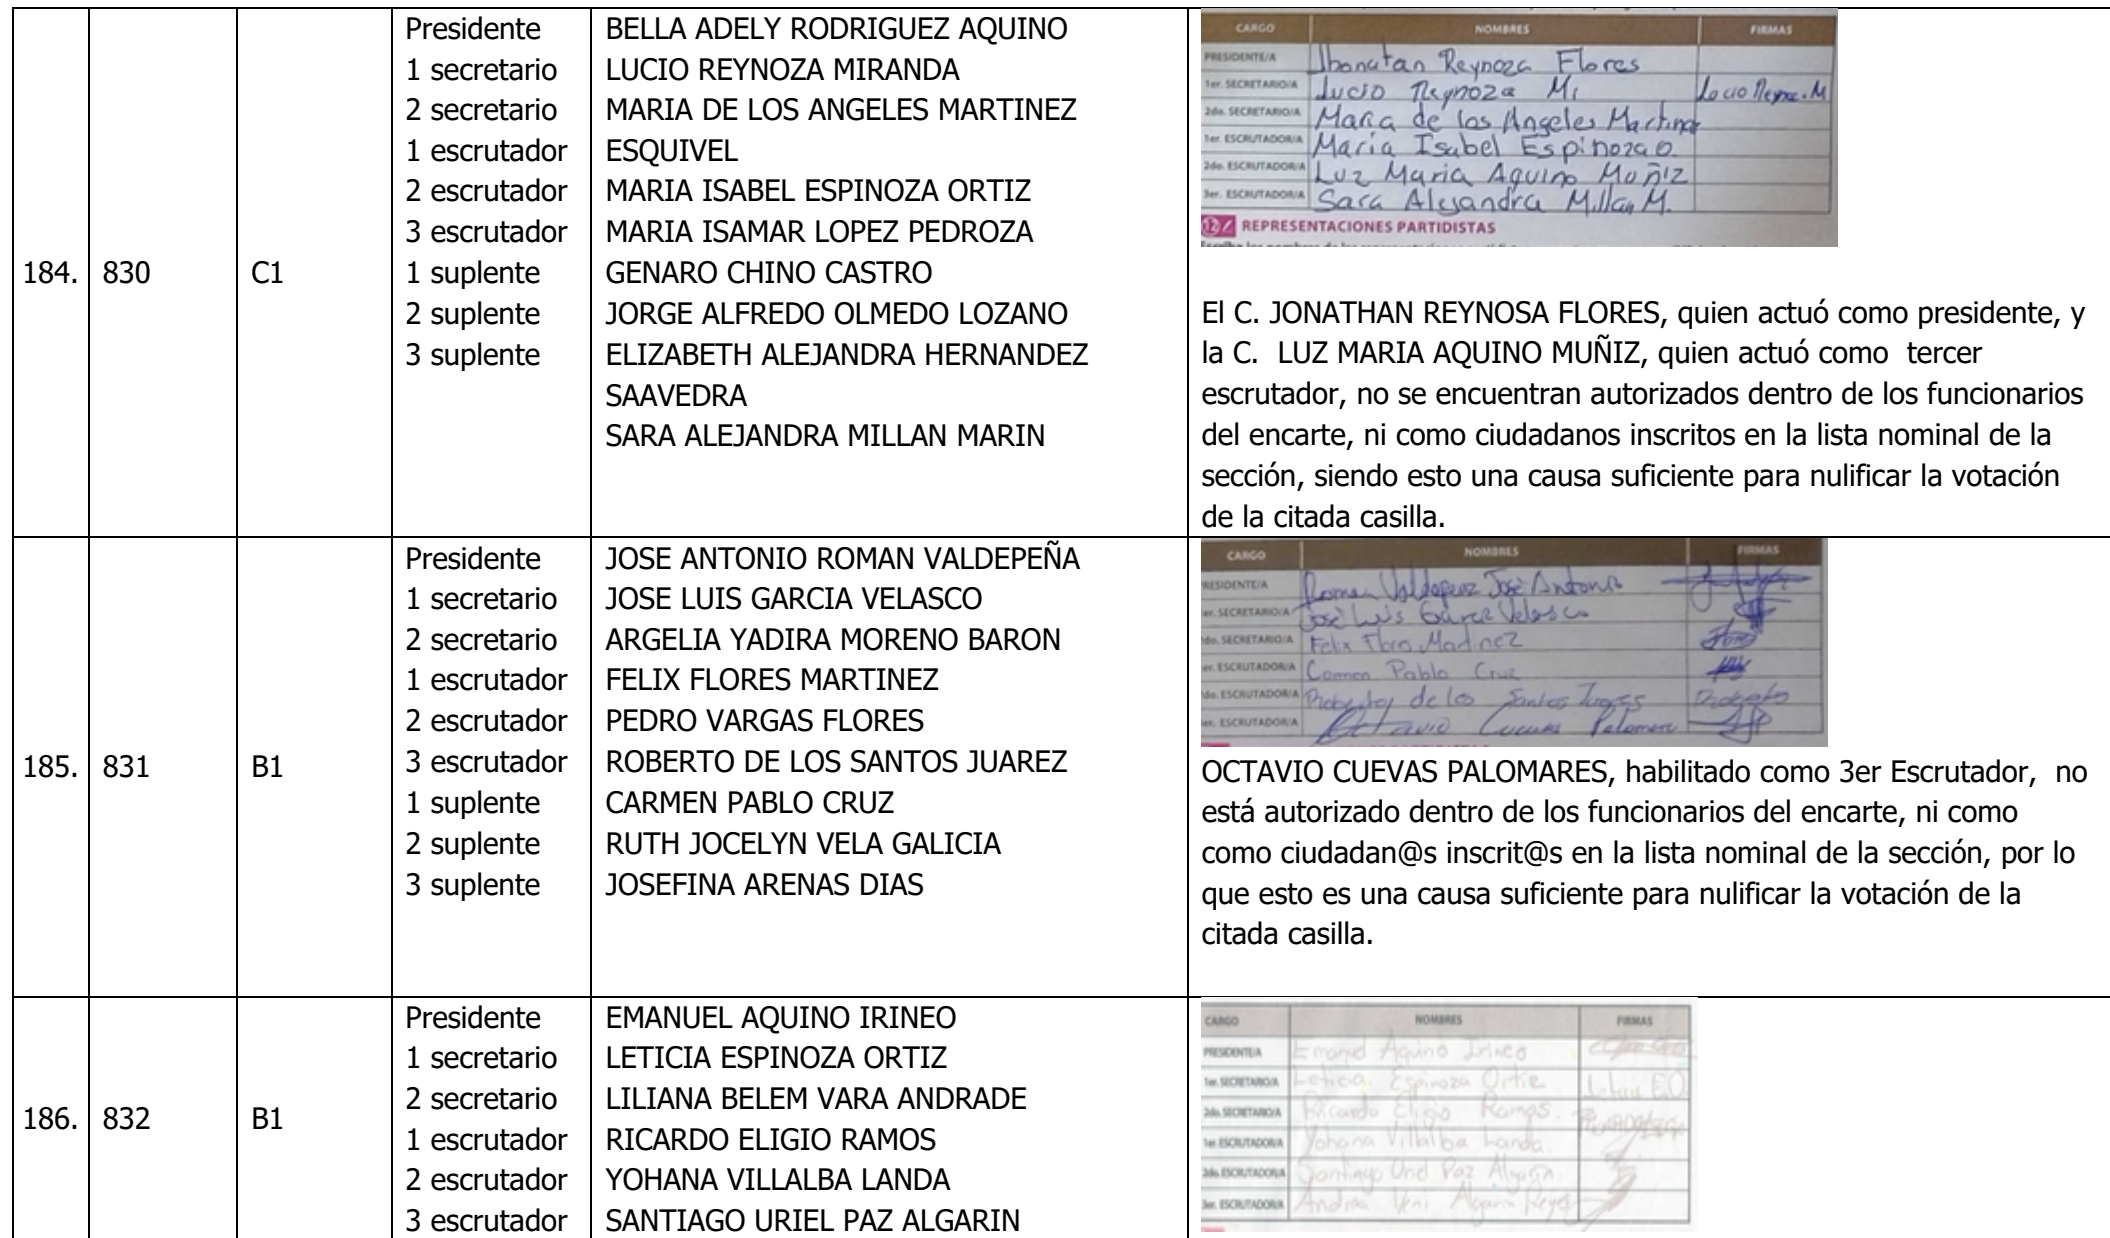 184. 830 C1
Presidente
1 secretario
2 secretario
1 escrutador
2 escrutador
3 escrutador
1 suplente
2 suplente
3 suplente
BELLA ADELY RODRIGUEZ AQUINO
LUCIO REYNOZA MIRANDA
MARIA DE LOS ANGELES MARTINEZ
ESQUIVEL
MARIA ISABEL ESPINOZA ORTIZ
MARIA ISAMAR LOPEZ PEDROZA
GENARO CHINO CASTRO
JORGE ALFREDO OLMEDO LOZANO
ELIZABETH ALEJANDRA HERNANDEZ
SAAVEDRA
SARA ALEJANDRA MILLAN MARIN
CARGO NOMBRES FIRMAS
PRESIDENTE/A Jhonatan Reynoza Flores
1er. SECRETARIO/A Lucio Reynoza Mi
2do. SECRETARIO/A Maria de los Angeles Martinez
1er. ESCRUTADOR/A Maria Isabel Espinoza O.
2do. ESCRUTADOR/A Luz Maria Aquino Muñiz
3er. ESCRUTADOR/A Sara Alejandra Millan M.
12 REPRESENTACIONES PARTIDISTAS
El C. JONATHAN REYNOSA FLORES, quien actuó como presidente, y
la C. LUZ MARIA AQUINO MUÑIZ, quien actuó como tercer
escrutador, no se encuentran autorizados dentro de los funcionarios
del encarte, ni como ciudadanos inscritos en la lista nominal de la
sección, siendo esto una causa suficiente para nulificar la votación
de la citada casilla.
185. 831 B1
Presidente
1 secretario
2 secretario
1 escrutador
2 escrutador
3 escrutador
1 suplente
2 suplente
3 suplente
JOSE ANTONIO ROMAN VALDEPEÑA
JOSE LUIS GARCIA VELASCO
ARGELIA YADIRA MORENO BARON
FELIX FLORES MARTINEZ
PEDRO VARGAS FLORES
ROBERTO DE LOS SANTOS JUAREZ
CARMEN PABLO CRUZ
RUTH JOCELYN VELA GALICIA
JOSEFINA ARENAS DIAS
CARGO NOMBRES FIRMAS
RESIDENTE/A Roman José Antonio
er. SECRETARIO/A José Luis Velasco
do. SECRETARIO/A Felix
er. ESCRUTADOR/A Carmen Pablo Cruz
do. ESCRUTADOR/A de los Santos
er. ESCRUTADOR/A Octavio Cuevas
OCTAVIO CUEVAS PALOMARES, habilitado como 3er Escrutador, no
está autorizado dentro de los funcionarios del encarte, ni como
como ciudadan@s inscrit@s en la lista nominal de la sección, por lo
que esto es una causa suficiente para nulificar la votación de la
citada casilla.
186. 832 B1
Presidente
1 secretario
2 secretario
1 escrutador
2 escrutador
3 escrutador
EMANUEL AQUINO IRINEO
LETICIA ESPINOZA ORTIZ
LILIANA BELEM VARA ANDRADE
RICARDO ELIGIO RAMOS
YOHANA VILLALBA LANDA
SANTIAGO URIEL PAZ ALGARIN
CARGO NOMBRES FIRMAS
PRESIDENTE/A Emanuel Aquino Irineo
1er. SECRETARIO/A Leticia Espinoza Ortiz
2do. SECRETARIO/A Ricardo Eligio Ramos
1er. ESCRUTADOR/A Yohana Villalba Landa
2do. ESCRUTADOR/A Santiago Paz Algarin
3er. ESCRUTADOR/A Algarin Reyes